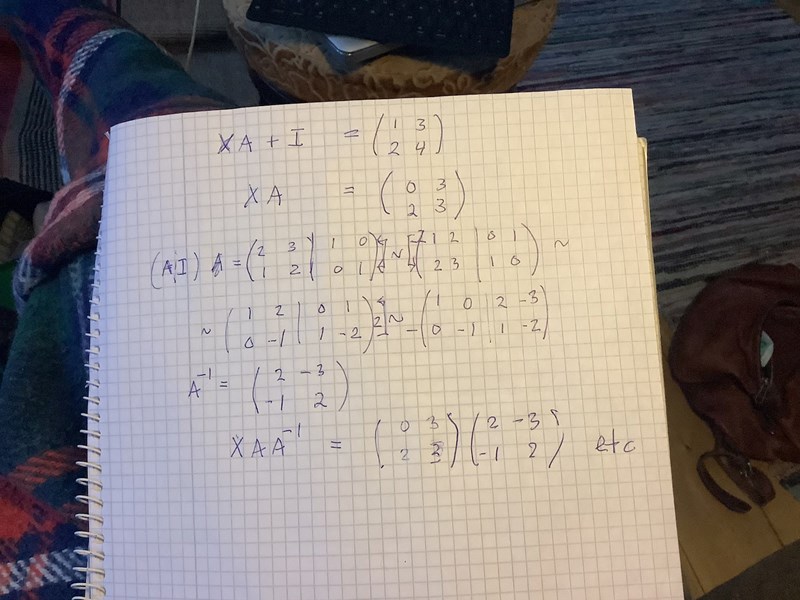 XA + I = (1 3 / 2 4)
XA = (0 3 / 2 3)
(A,I) A = (2 3 | 1 0 / 1 2 | 0 1) ~ (1 2 | 0 1 / 2 3 | 1 0) ~
~ (1 2 | 0 1 / 0 -1 | 1 -2) 2 ~ - (1 0 | 2 -3 / 0 -1 | 1 -2)
A⁻¹ = (2 -3 / -1 2)
XAA⁻¹ = (0 3 / 2 3) (2 -3 / -1 2) etc